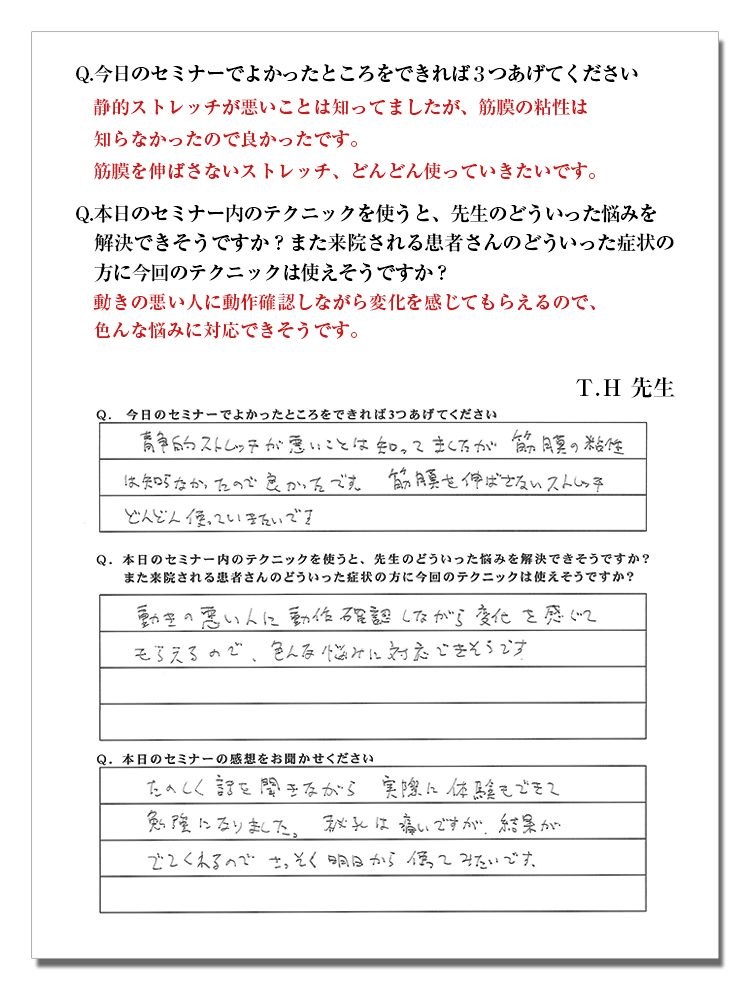 Q.今日のセミナーでよかったところをできれば３つあげてください
静的ストレッチが悪いことは知ってましたが、筋膜の粘性は
知らなかったので良かったです。
筋膜を伸ばさないストレッチ、どんどん使っていきたいです。
Q.本日のセミナー内のテクニックを使うと、先生のどういった悩みを
解決できそうですか？また来院される患者さんのどういった症状の
方に今回のテクニックは使えそうですか？
動きの悪い人に動作確認しながら変化を感じてもらえるので、
色んな悩みに対応できそうです。
T.H 先生
Q. 今日のセミナーでよかったところをできれば3つあげてください
静的ストレッチが悪いことは知ってましたが 筋膜の粘性
は知らなかったので良かったです 筋膜を伸ばさないストレッチ
どんどん使っていきたいです
Q. 本日のセミナー内のテクニックを使うと、先生のどういった悩みを解決できそうですか？
また来院される患者さんのどういった症状の方に今回のテクニックは使えそうですか？
動きの悪い人に動作確認しながら変化を感じて
もらえるので、色んな悩みに対応できそうです
Q. 本日のセミナーの感想をお聞かせください
たのしく話を聞きながら 実際に体験もできて
勉強になりました。 は痛いですが、結果が
でてくれるので さっそく明日から使ってみたいです。